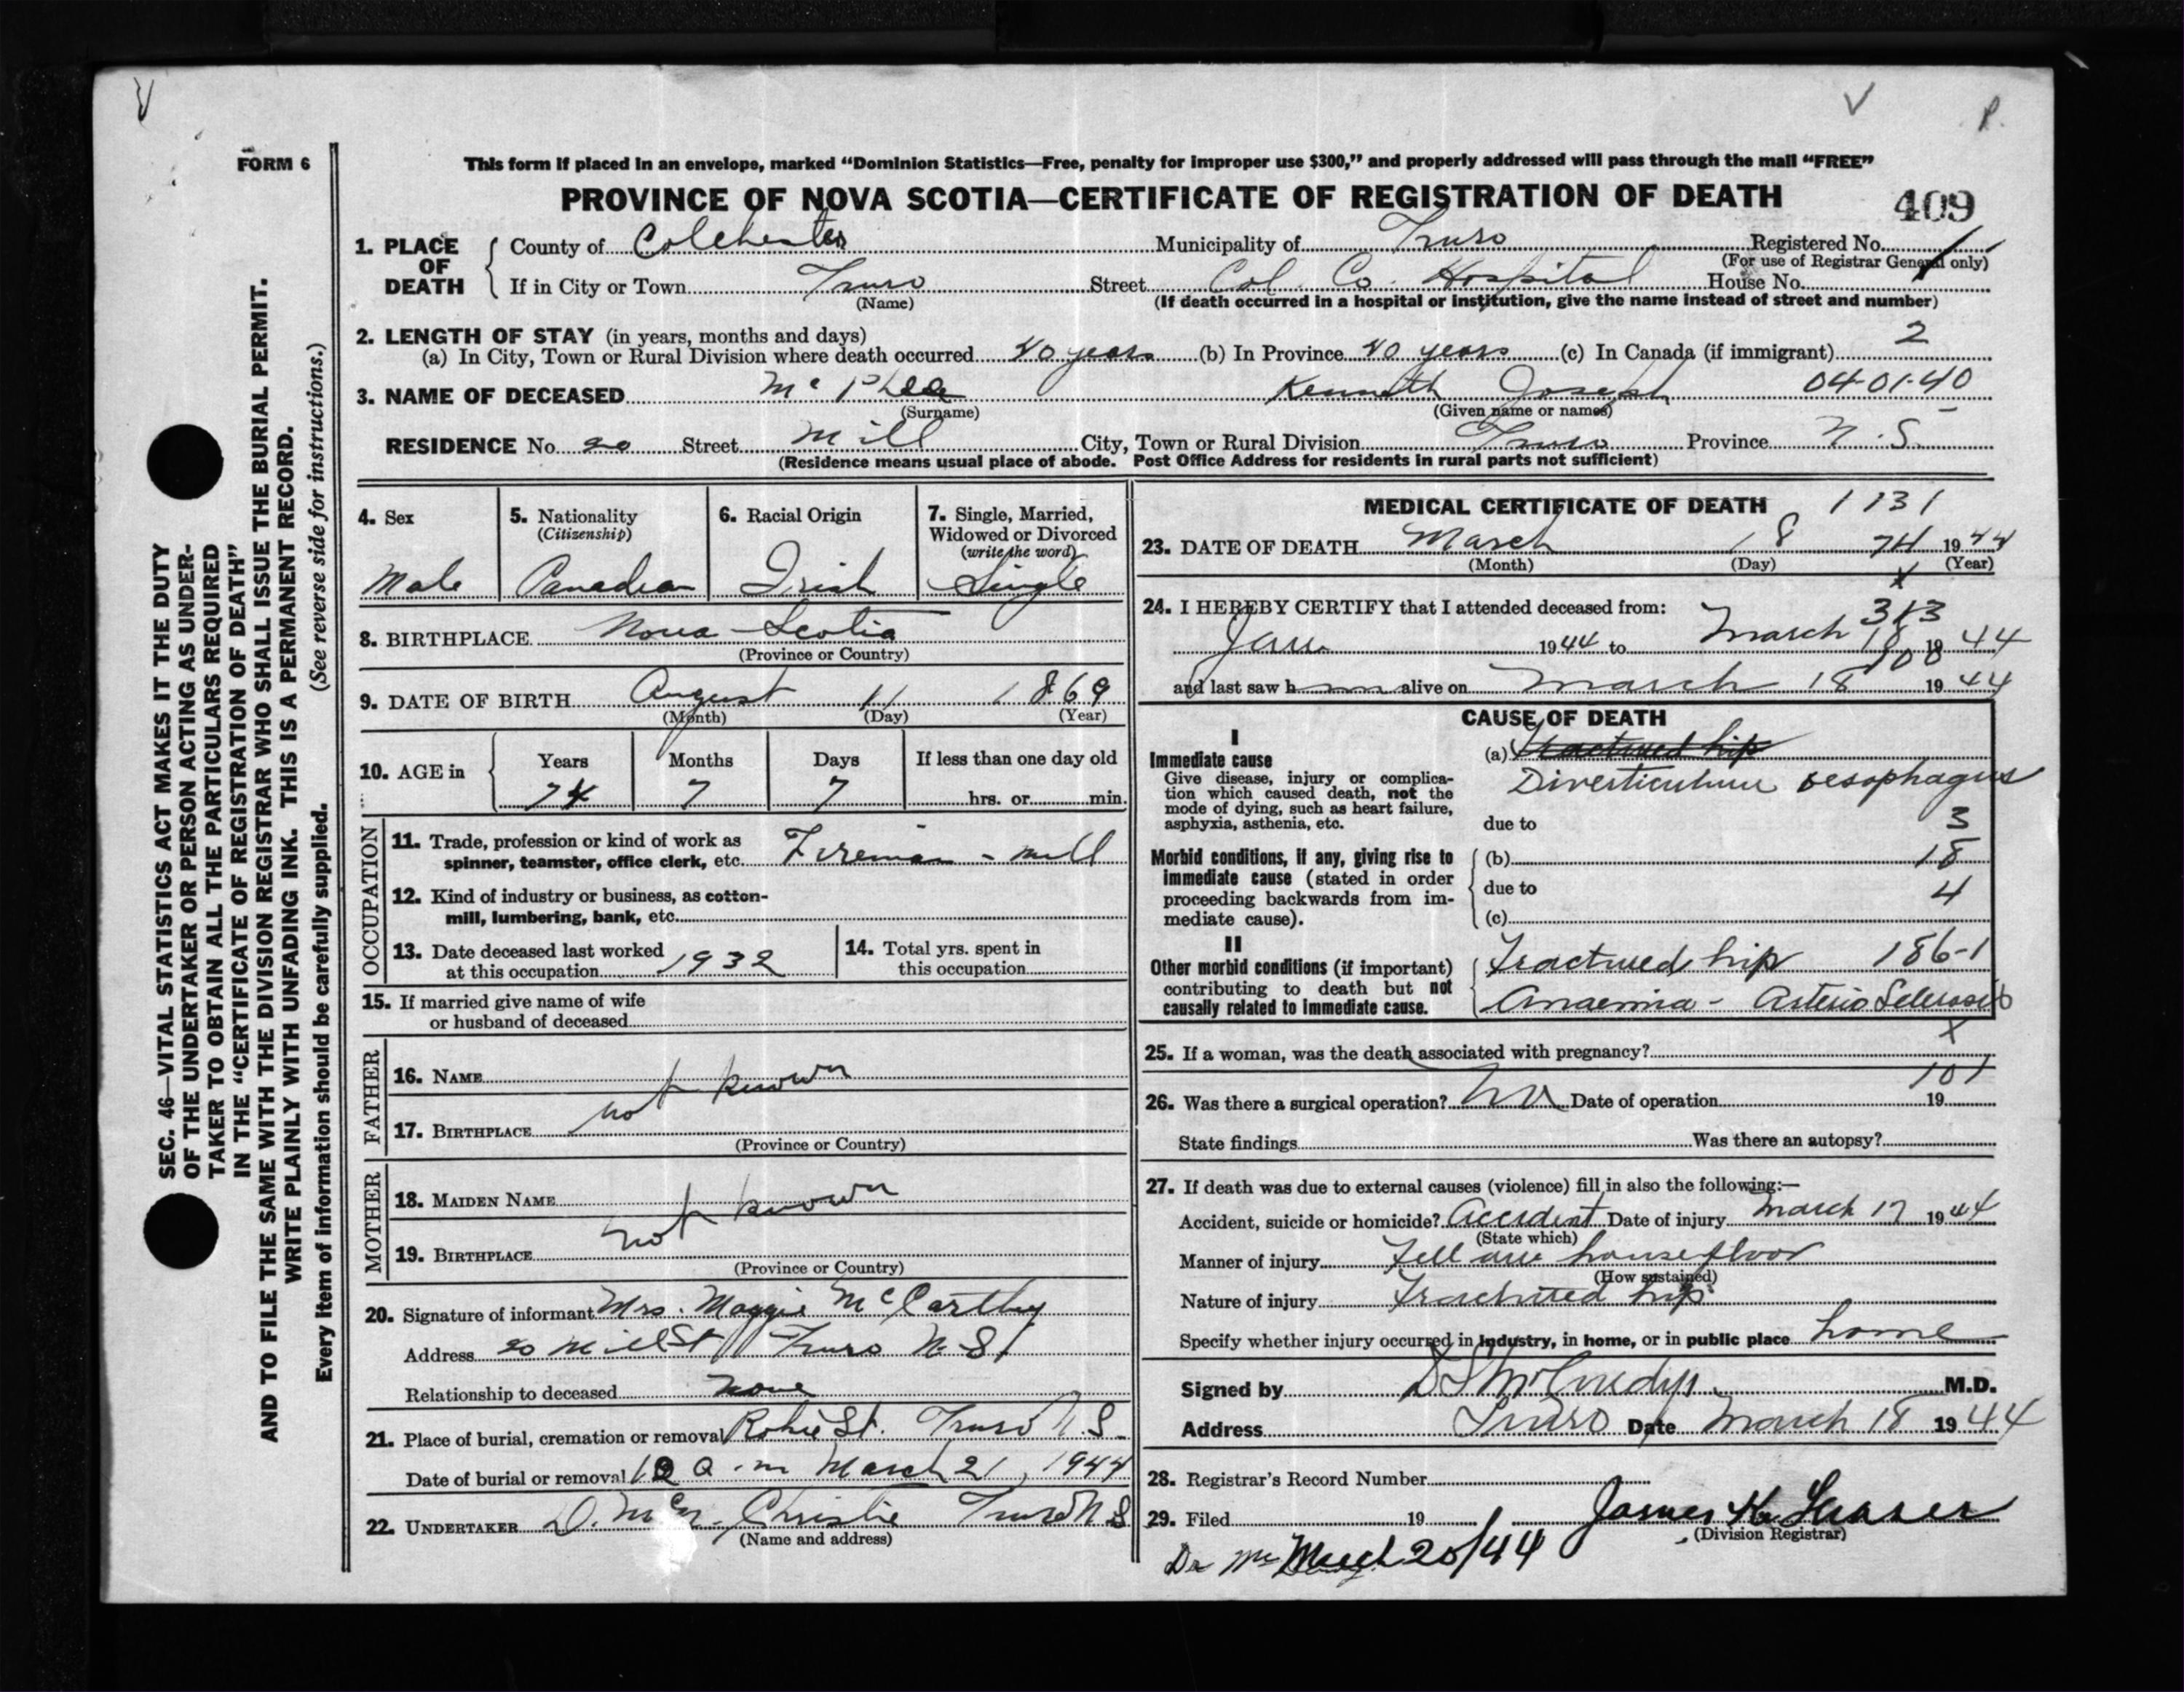 FORM 6
This form if placed in an envelope, marked “Dominion Statistics—Free, penalty for improper use $300,” and properly addressed will pass through the mail “FREE”
PROVINCE OF NOVA SCOTIA—CERTIFICATE OF REGISTRATION OF DEATH 409
1. PLACE OF DEATH County of Colchester Municipality of Truro Registered No. 1
(For use of Registrar General only)
If in City or Town Truro Street Col. Co. Hospital House No.
(Name) (If death occurred in a hospital or institution, give the name instead of street and number)
2. LENGTH OF STAY (in years, months and days) 2
(a) In City, Town or Rural Division where death occurred 40 years (b) In Province 40 years (c) In Canada (if immigrant)
3. NAME OF DECEASED Mc Phee Kenneth Joseph 04-01-40
(Surname) (Given name or names)
RESIDENCE No. 20 Street Mill City, Town or Rural Division Truro Province N.S.
(Residence means usual place of abode. Post Office Address for residents in rural parts not sufficient)
4. Sex
Male
5. Nationality
(Citizenship)
Canadian
6. Racial Origin
Irish
7. Single, Married,
Widowed or Divorced
(write the word)
Single
8. BIRTHPLACE Nova Scotia
(Province or Country)
9. DATE OF BIRTH August 11 1869
(Month) (Day) (Year)
10. AGE in Years Months Days If less than one day old
74 7 7 hrs. or min.
OCCUPATION
11. Trade, profession or kind of work as
spinner, teamster, office clerk, etc. Fireman - mill
12. Kind of industry or business, as cotton-
mill, lumbering, bank, etc.
13. Date deceased last worked
at this occupation 1932
14. Total yrs. spent in
this occupation
15. If married give name of wife
or husband of deceased
FATHER
16. NAME
not known
17. BIRTHPLACE
(Province or Country)
MOTHER
18. MAIDEN NAME
not known
19. BIRTHPLACE
(Province or Country)
20. Signature of informant Mrs. Maggie McCarthy
Address 20 Mill St Truro N.S.
Relationship to deceased none
21. Place of burial, cremation or removal Robie St. Truro N.S.
Date of burial or removal a.m March 21, 1944
22. UNDERTAKER Christie Truro N S
(Name and address)
MEDICAL CERTIFICATE OF DEATH 1131
23. DATE OF DEATH March 18 74 1944
(Month) (Day) (Year)
X
24. I HEREBY CERTIFY that I attended deceased from: 313
Jan. 1944 to March 18 1944
100
and last saw him alive on March 18 1944
CAUSE OF DEATH
I
Immediate cause
Give disease, injury or complica-
tion which caused death, not the
mode of dying, such as heart failure,
asphyxia, asthenia, etc.
(a) Fractured hip
Diverticulum oesophagus
due to 3
Morbid conditions, if any, giving rise to
immediate cause (stated in order
proceeding backwards from im-
mediate cause).
(b) 18
due to 4
(c)
II
Other morbid conditions (if important)
contributing to death but not
causally related to immediate cause.
Fractured hip 186-1
Anaemia - Arterio Sclerosis
X
25. If a woman, was the death associated with pregnancy?
101
26. Was there a surgical operation? No Date of operation 19
State findings Was there an autopsy?
27. If death was due to external causes (violence) fill in also the following:—
Accident, suicide or homicide? Accident Date of injury March 17 1944
(State which)
Manner of injury Fell on house floor
(How sustained)
Nature of injury Fractured hip
Specify whether injury occurred in industry, in home, or in public place home
Signed by M.D.
Address Truro Date March 18 1944
28. Registrar's Record Number
29. Filed 19 James
(Division Registrar)
March 20/44
SEC. 46—VITAL STATISTICS ACT MAKES IT THE DUTY
OF THE UNDERTAKER OR PERSON ACTING AS UNDER-
TAKER TO OBTAIN ALL THE PARTICULARS REQUIRED
IN THE “CERTIFICATE OF REGISTRATION OF DEATH”
AND TO FILE THE SAME WITH THE DIVISION REGISTRAR WHO SHALL ISSUE THE BURIAL PERMIT.
WRITE PLAINLY WITH UNFADING INK. THIS IS A PERMANENT RECORD.
Every item of information should be carefully supplied. (See reverse side for instructions.)